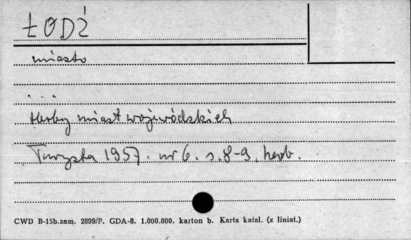 ŁODŹ
miasto
...
Herby miast wojewódzkich
Turysta 1957. nr 6. s. 8-9, herb.
CWD B-15b.zam. 2899/P. GDA-8. 1.000.000. karton b. Karta katal. (z liniat.)